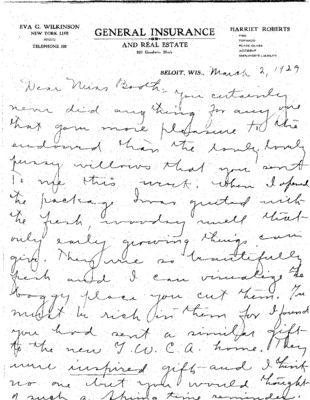 EVA G. WILKINSON
NEW YORK LIFE
TELEPHONE
GENERAL INSURANCE
AND REAL ESTATE
Goodwin Block
HARRIET ROBERTS
FIRE
TORNADO
PLATE GLASS
ACCIDENT
EMPLOYER'S LIABILITY
BELOIT, WIS., March 2, 1929
Dear Miss Booth:- You certainly
never did anything for any one
that gave more pleasure to the
endowed than the lovely, lovely
pussy willows that you sent
to me this week. When I opened
the package I was greeted with
the fresh, woodsy smell that
only early growing things can
give. They are so beautifully
fresh and I can visualize the
boggy place you cut them. You
must be rich in them for I found
you had sent a similar gift
to the new Y.W.C.A. home. They
were inspired gifts and I think
no one but you would thought
of such a spring time reminder.